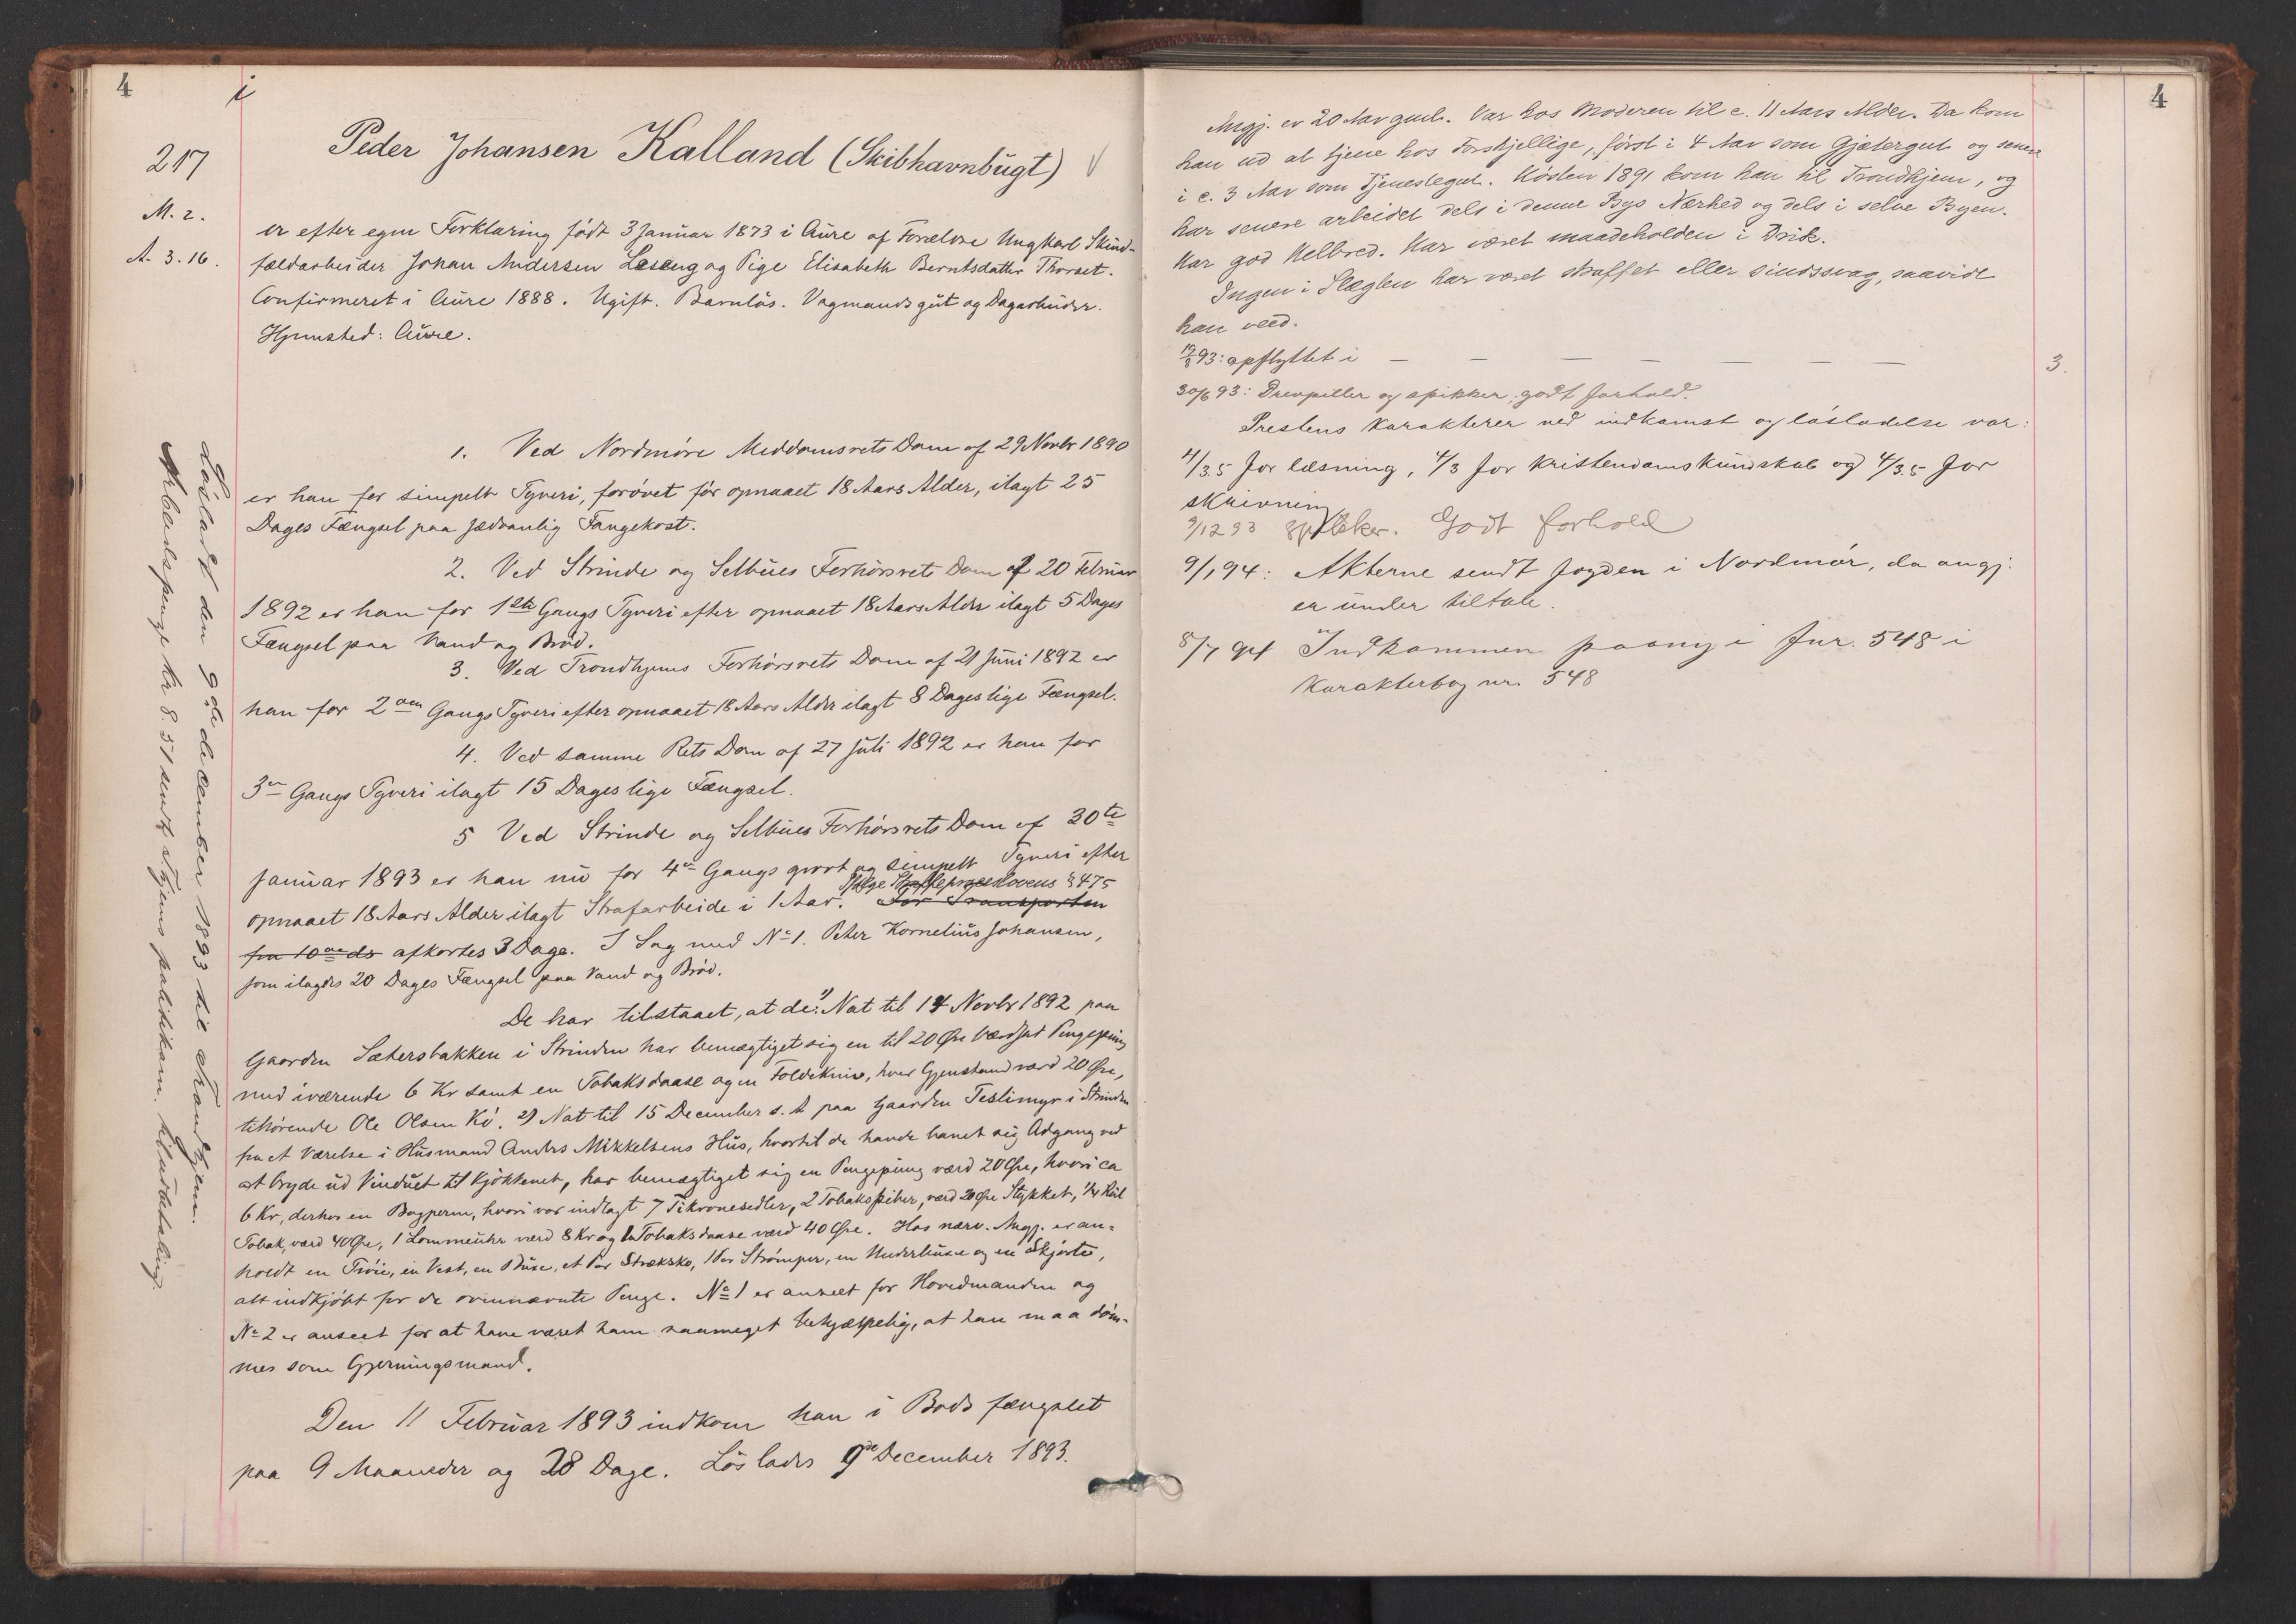 4
i
217
M. 2.
A. 3. 16.
Peder Johansen Kalland (Skibhavnbugt)
er efter egen Forklaring født 3 Januar 1873 i Aure af Forældre Ungkarl Skind-
fældarbeider Johan Andersen Leseng og Pige Elisabeth Berntsdatter Thorset.
Confirmeret i Aure 1888. Ugift. Barnløs. Vogmandsgut og Dagarbeider.
Hjemsted: Aure.
1. Ved Nordmøre Meddomsrets Dom af 29 Novbr 1890
er han for simpelt Tyveri, forøvet før opnaaet 18 Aars Alder, ilagt 25
Dages Fængsel paa sædvanlig Fangekost.
2. Ved Strinde og Selbues Forhørsrets Dom af 20 Februar
1892 er han for 1ste Gangs Tyveri efter opnaaet 18 Aars Alder ilagt 5 Dages
Fængsel paa Vand og Brød.
3. Ved Trondhjems Forhørsrets Dom af 21 Juni 1892 er
han for 2den Gangs Tyveri efter opnaaet 18 Aars Alder ilagt 8 Dages lige Fængsel.
4. Ved samme Rets Dom af 27 Juli 1892 er han for
3die Gangs Tyveri ilagt 15 Dages lige Fængsel.
5 Ved Strinde og Selbues Forhørsrets Dom af 30te
Januar 1893 er han nu for 4de Gangs grovt og simpelt Tyveri efter
Ifølge Straffeproceslovens § 475
opnaaet 18 Aars Alder ilagt Strafarbeide i 1 Aar. For Transporten
fra 10de ds afkortes 3 Dage. I Sag med No 1. Peter Kornelius Johansen,
som ilagdes 20 Dages Fængsel paa Vand og Brød.
De har tilstaaet, at de: 1) Nat til 14 Novbr 1892 paa
Gaarden Sætersbakken i Strinden har bemægtiget sig en til 20 Øre værdsat Pengepung
med iværende 6 Kr samt en Tobaksdaase og en Foldekniv, hver Gjenstand værd 20 Øre,
tilhørende Ole Olsen Kø. 2) Nat til 15 December s. A. paa Gaarden Teslimyr i Strinden
fra et Værelse i Husmand Anders Mikkelsens Hus, hvortil de havde banet sig Adgang ved
at bryde ud Vinduet til Kjøkkenet, har bemægtiget sig en Pengepung værd 20 Øre, hvori ca
6 Kr, derhos en Bogperm, hvori var indlagt 7 Tikronesedler, 2 Tobakspiber, værd 20 Øre Stykket, 1/4 Rul
Tobak, værd 40 Øre, 1 Lommeuhr værd 8 Kr og 1 Tobaksdaase værd 40 Øre. Hos nærv. Angj. er an-
holdt en Trøie, en Vest, en Buxe, et Par Stræksko, 1 Par Strømper, en Underbuxe og en Skjorte,
alt indkjøbt for de ovennævnte Penge. No 1 er anseet for Hovedmanden og
No 2 er anseet for at have været ham saameget behjælpelig, at han maa døm-
mes som Gjerningsmand.
Den 11 Februar 1893 indkom han i Bodsfængslet
paa 9 Maaneder og 28 Dage. Løslades 9de December 1893.
Løsladt den 9de december 1893 til Trondhjem.
Arbeidspenge kr 8.51 sendt Thjems politikam. til udbetaling.
4
Angj. er 20 Aar gml. Var hos Moderen til c. 11 Aars Alder. Da kom
han ud at tjene hos Forskjellige, først i 4 Aar som Gjætergut og senere
i c. 3 Aar som Tjenestegut. Høsten 1891 kom han til Trondhjem, og
har senere arbeidet dels i denne Bys Nærhed og dels i selve Byen.
Har god Helbred. Har været maadeholden i Drik.
Ingen i Slægten har været straffet eller sindssvag, saavidt
han veed.
19/8 93: opflyttet i — — — — — — — 3.
30/6 93: Drevpiller og spikker, godt forhold.
Prestens karakterer ved indkomst og løsladelse var:
4/3.5 for læsning, 4/3 for kristendomskundskab og 4/3.5 for
skrivning
9/12 93 spikker. Godt forhold
9/1 94: Akterne sendt fogden i Nordmør, da angj.
er under tiltale.
8/7 94 Indkommen paany i Jnr. 548 i
Karakterbog nr. 548